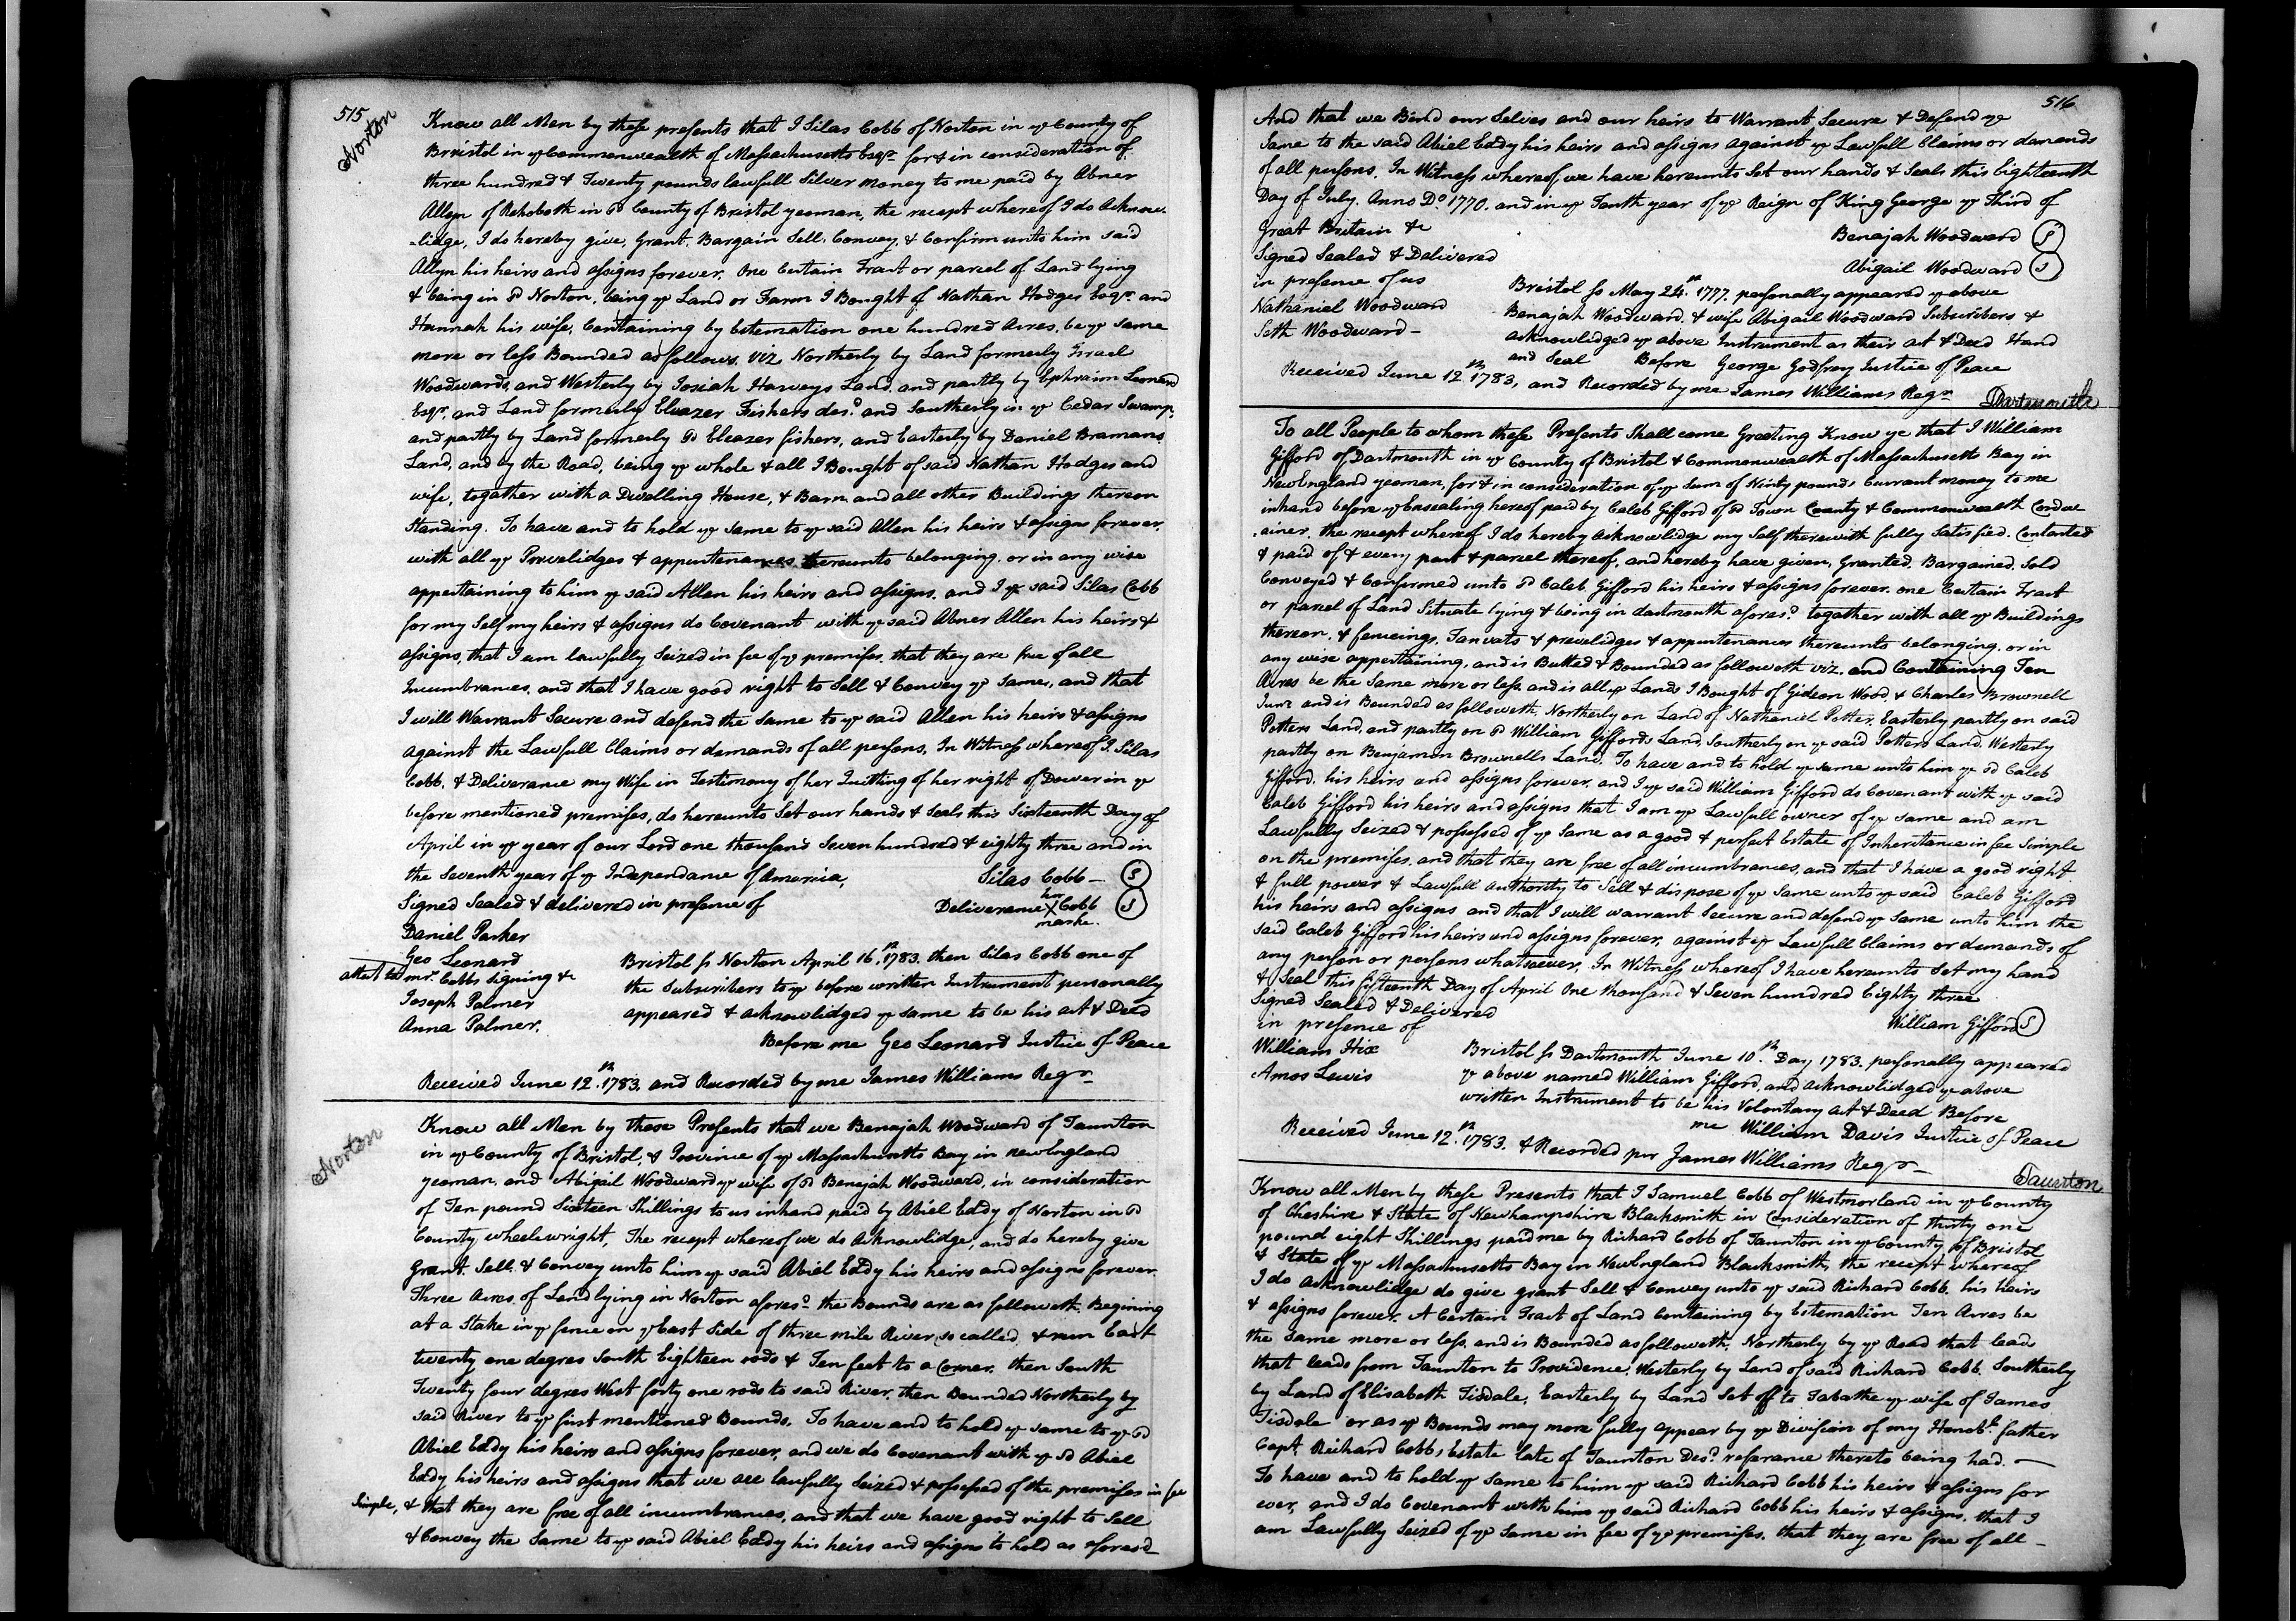 515
Norton
Know all Men by these presents that I Silas Cobb of Norton in ye County of
Bristol in ye Commonwealth of Massachusetts Esqr. for & in consideration of
three hundred & Twenty pounds lawfull Silver money to me paid by Abner
Allyn of Rehoboth in sd County of Bristol yeoman, the recept whereof I do Acknow-
-lidge, I do hereby give, Grant, Bargain Sell, Convey, & Confirm unto him said
Allyn his heirs and assigns forever, One Certain Tract or parcel of Land lying
& being in sd Norton, being ye Land or Farm I Bought of Nathan Hodges Esqr. and
Hannah his wife, Containing by Estemation one hundred Acres, be ye Same
more or less Bounded as follows, viz Northerly by Land formerly Israel
Woodwards, and Westerly by Josiah Harveys Land, and partly by Ephraim Leonard
Esqr. and Land formerly Eleazer Fishers desd. and Southerly in ye Cedar Swamp,
and partly by Land formerly sd Eleazer fishers, and Easterly by Daniel Bramans
Land, and by the Road, being ye whole & all I Bought of said Nathan Hodges and
wife, together with a Dwelling House, & Barn and all other Buildings thereon
Standing. To have and to hold ye Same to ye said Allen his heirs & assigns forever,
with all ye Previlidges & appurtenances thereunto belonging, or in any wise
appertaining to him ye said Allen his heirs and assigns, and I ye said Silas Cobb
for my Self my heirs & assigns do Covenant with ye said Abner Allen his heirs &
assigns, that I am lawfully Seized in fee of ye premises, that they are free of all
Incumbrances, and that I have good right to Sell & Convey ye Same, and that
I will Warrant Secure and defend the Same to ye said Allen his heirs & assigns
against the Lawfull Claims or demands of all persons, In Witness whereof I Silas
Cobb, & Deliverance my Wife in Testimony of her Quitting of her right of Dower in ye
before mentioned premises, do hereunto Set our hands & Seals this Sixteenth Day of
April in ye year of our Lord one thousand Seven hundred & eighty three and in
the Seventh year of ye Independance of America,
Silas Cobb — S
Signed Sealed & delivered in presence of
her
Deliverance X Cobb S
marke.
Daniel Parker
Geo Leonard
attest to mr. Cobbs signing &c
Joseph Palmer
Anna Palmer.
Bristol ss Norton April 16th. 1783. then Silas Cobb one of
the Subscribers to ye before written Instrument personally
appeared & acknowlidged ye same to be his act & Deed
Before me Geo Leonard Justice of Peace
Received June 12th. 1783, and Recorded by me James Williams Regr
Norton
Know all Men by these Presents that we Benajah Woodward of Taunton
in ye County of Bristol, & Province of ye Massachusetts Bay in newEngland
yeoman, and Abigail Woodward ye wife of sd Benajah Woodward, in consideration
of Ten pound Sixteen Shillings to us inhand paid by Abiel Eddy of Norton in sd
County wheelewright, The recept whereof we do Acknowlidge, and do hereby give
grant, Sell, & Convey unto him ye said Abiel Eddy his heirs and assigns forever
Three Acres of Land lying in Norton aforesd. the Bounds are as followeth, Begining
at a Stake in ye fence on ye East Side of three mile River, so called, & run East
twenty one degres South Eighteen rods & Ten feet to a Corner, then South
Twenty four degres West forty one rods to said River, then Bounded Northerly by
said River to ye first mentioned Bounds, To have and to hold ye same to ye sd
Abiel Eddy his heirs and assigns forever, and we do Covenant with ye sd Abiel
Eddy his heirs and assigns that we are lawfully Seized & possessed of the premises in fee
Simple, & that they are free of all incumbrances, and that we have good right to Sell
& Convey the Same to ye said Abiel Eddy his heirs and assigns to hold as aforesd
516
And that we Bind our Selves and our heirs to Warrant Secure & Defend ye
Same to the said Abiel Eddy his heirs and assigns against ye Lawfull Claims or demands
of all persons, In Witness whereof we have hereunto Set our hands & Seals this Eighteenth
Day of July, Anno Do. 1770, and in ye Tenth year of ye Reign of King George ye Third of
Great Britain &c
Benajah Woodward S
Signed Sealed & Delivered
Abigail Woodward S
in presence of us
Nathaniel Woodward
Seth Woodward —
Bristol ss May 24th. 1777, personally appeared ye above
Benajah Woodward, & wife Abigail Woodward Subscribers &
acknowlidged ye above Instrument as their act & Deed Hand
and Seal Before George Godfrey Justice of Peace
Received June 12th 1783, and Recorded by me James Williams Regr
Dartmouth
To all People to whom these Presents Shall come Greeting Know ye that I William
Gifford of Dartmouth in ye County of Bristol & Commonwealth of Massachusetts Bay in
NewEngland yeoman, for & in consideration of ye Sum of Ninty pounds Currant money to me
inhand before ye Ensealing hereof paid by Caleb Gifford of sd Town County & Commonwealth Cordw
-ainer, the recept whereof I do hereby Acknowlidge my Self therewith fully Satisfied, Contented
& paid of & every part & parcel thereof, and hereby have given, Granted, Bargained, Sold
Conveyed & Confirmed unto sd Caleb Gifford his heirs & assigns forever, one Certain Tract
or parcel of Land Situate lying & being in dartmouth aforesd. togather with all ye Buildings
thereon, & fenceings, Tanvats & previlidges & appurtenances thereunto belonging, or in
any wise appertaining, and is Butted & Bounded as followeth viz. and Containing Ten
Acres be the Same more or less, and is all ye Lands I Bought of Gideon Wood, & Charles Brownell
Junr and is Bounded as followeth, Northerly on Land of Nathaniel Potter, Easterly partly on said
Potters Land, and partly on sd William Giffords Land, Southerly on ye said Potters Land, Westerly
partly on Benjamin Brownells Land, To have and to hold ye same unto him ye sd Caleb
Gifford, his heirs and assigns forever, and I ye said William Gifford do Covenant with ye said
Caleb Gifford his heirs and assigns that I am ye Lawfull owner of ye same and am
Lawfully Seized & possessed of ye Same as a good & perfect Estate of Inheritance in fee Simple
on the premises, and that they are free of all incumbrances, and that I have a good right
& full power & Lawfull authority to Sell & dispose of ye Same unto ye said Caleb Gifford
his heirs and assigns and that I will warrant Secure and defend ye Same unto him the
said Caleb Gifford his heirs and assigns forever, against ye Lawfull Claims or demands of
any person or persons whatsoever, In Witness whereof I have hereunto Set my hand
& Seal this fifteenth Day of April One thousand & Seven hundred Eighty three
Signed Sealed & Delivered
in presence of
William Gifford S
William Hix
Amos Lewis
Bristol ss Dartmouth June 10th. Day 1783. personally appeared
ye above named William Gifford, and acknowlidged ye above
written Instrument to be his Volontary act & Deed Before
me William Davis Justice of Peace
Received June 12th. 1783. & Recorded pur James Williams Regr —
Taunton
Know all Men by these Presents that I Samuel Cobb of Westmorland in ye County
of Cheshire & State of Newhampshire Blacksmith in Consideration of thirty one
pound eight Shillings paid me by Richard Cobb of Taunton in ye County of Bristol
& State of ye Massachusetts Bay in NewEngland Blacksmith, the recept whereof
I do Acknowlidge do give grant Sell & Convey unto ye said Richard Cobb, his heirs
& assigns forever, A Certain Tract of Land Containing by Estemation Ten Acres be
the same more or less, and is Bounded as followeth, Northerly by ye Road that leads
that leads from Taunton to Providence, Westerly by Land of said Richard Cobb, Southerly
by Land of Elisabeth Tisdale, Easterly by Land Set off to Tabathe ye wife of James
Tisdale or as ye Bounds may more fully appear by ye Division of my Honobl. father
Capt. Richard Cobbs Estate late of Taunton Desd. referance thereto being had. —
To have and to hold ye Same to him ye said Richard Cobb his heirs & assigns for
ever, and I do Covenant with him ye said Richard Cobb his heirs & assigns, that I
am Lawfully Seized of ye Same in fee of ye premises, that they are free of all —